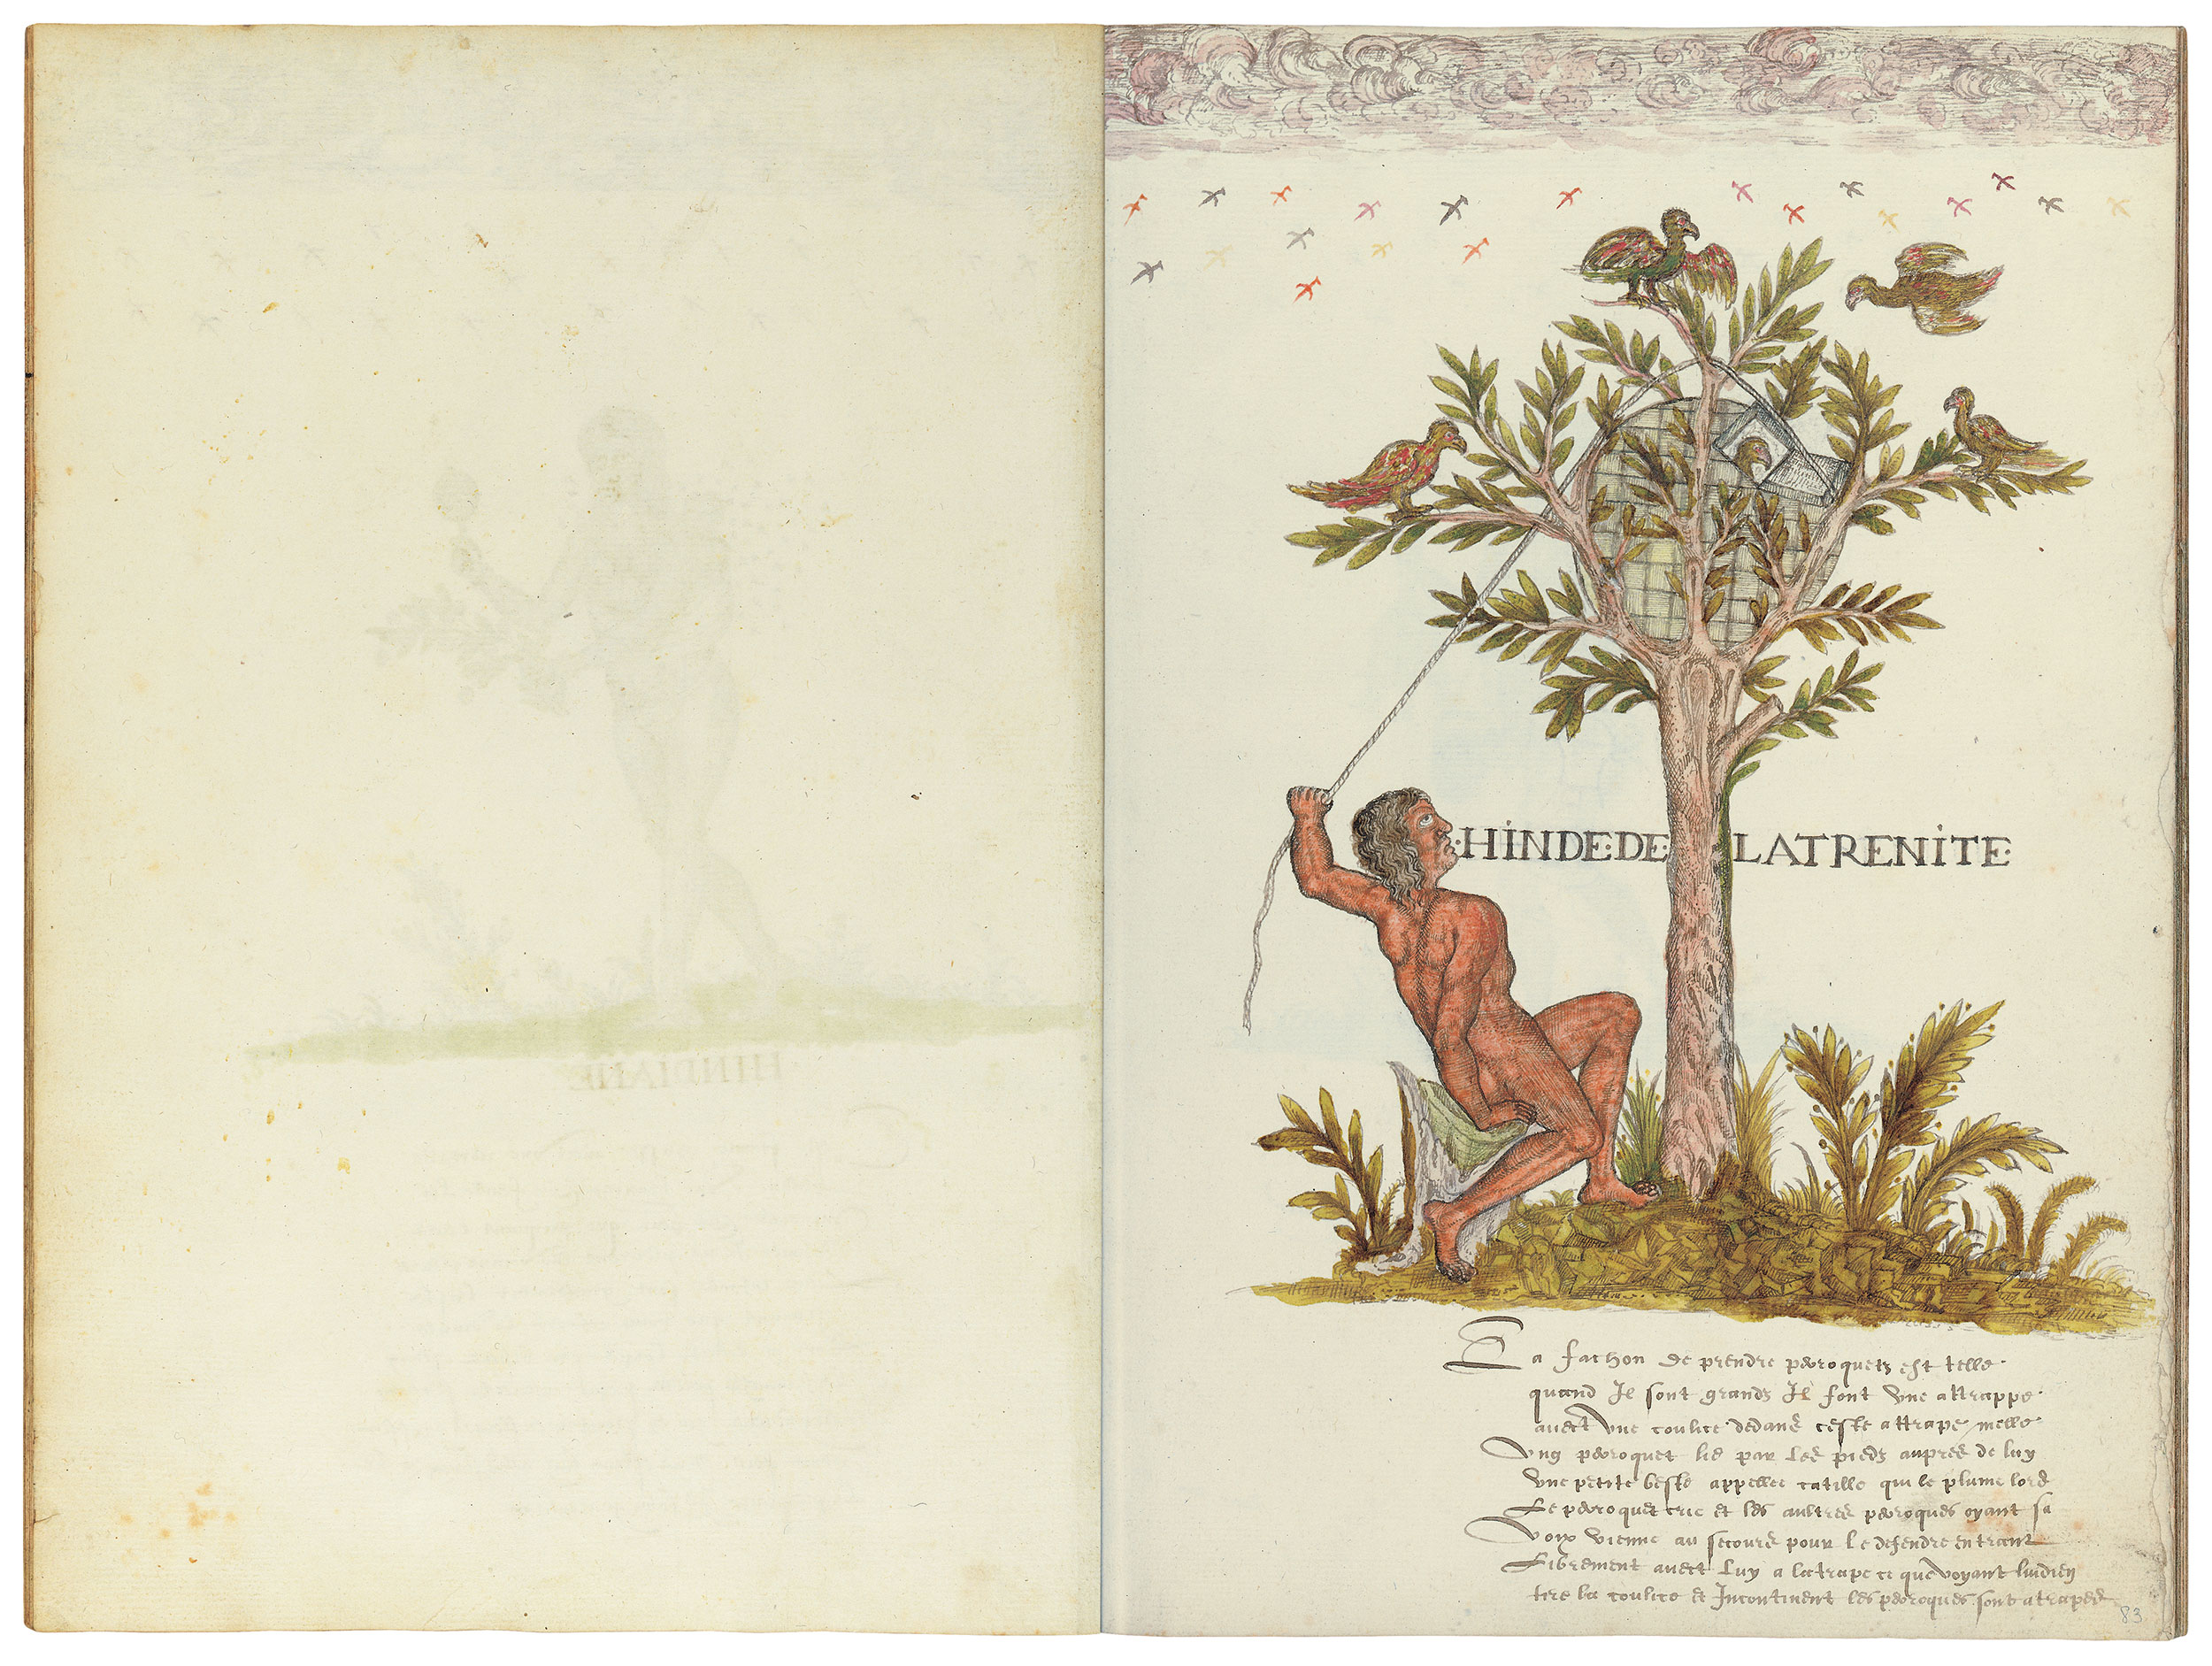 HINDE:DE LATRENITE:
La fachon de prendre peroquetz est telle
quand Il sont grandz Il font vne attrappe
auect vne coulice dedans ceste attrape melle
Vng peroquet lie par les pieds aupres de luy
vne petite beste appellee catille qui le plume lors
Le peroquet crie et les aultres peroques oyant sa
Voix vienne au secours pour le defendre entrant
Librement auect luy a latrape ce que voyant lindien
tire la coulice et Incontinent les peroques sont atrapes
83
HINDIANE